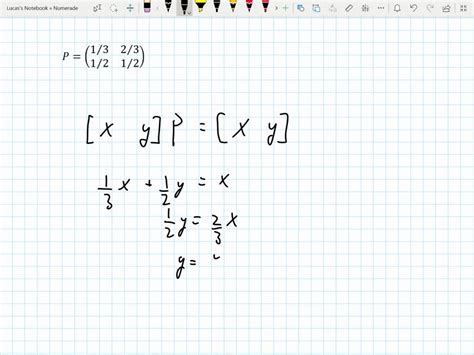 Lucas's Notebook » Numerade
P = (1/3 2/3
1/2 1/2)
[x y] P = [x y]
1/3 x + 1/2 y = x
1/2 y = 2/3 x
y =